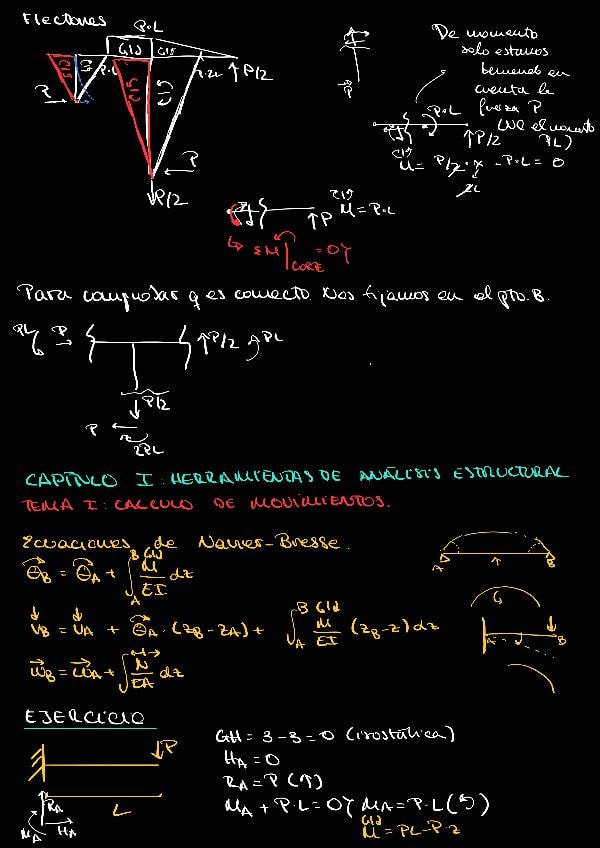 Flectores
P·L
P·L
P/2
P
P
P/2
De momento
solo estamos
teniendo en
cuenta la
fuerza P
(No el momento
PL)
P
P·L
P/2
M = P/2·x - P·L = 0
2L
P
M = P·L
ΣM| CORTE = 0
Para comprobar q es correcto. Nos fijamos en el pto. B.
PL
P
P/2
PL
P/2
P
2PL
CAPÍTULO I: HERRAMIENTAS DE ANÁLISIS ESTRUCTURAL
TEMA I: CALCULO DE MOVIMIENTOS.
Ecuaciones de Navier-Bresse.
θB = θA + ∫_A^B M/EI dz
vB = vA + θA·(zB-zA) + ∫_A^B M/EI (zB-z) dz
wB = wA + ∫ N/EA dz
A
B
A
B
EJERCICIO
P
L
RA
MA
HA
GH = 3-3 = 0 (isostática)
HA = 0
RA = P (↑)
MA + P·L = 0 MA = P·L (↺)
M = PL - P·z